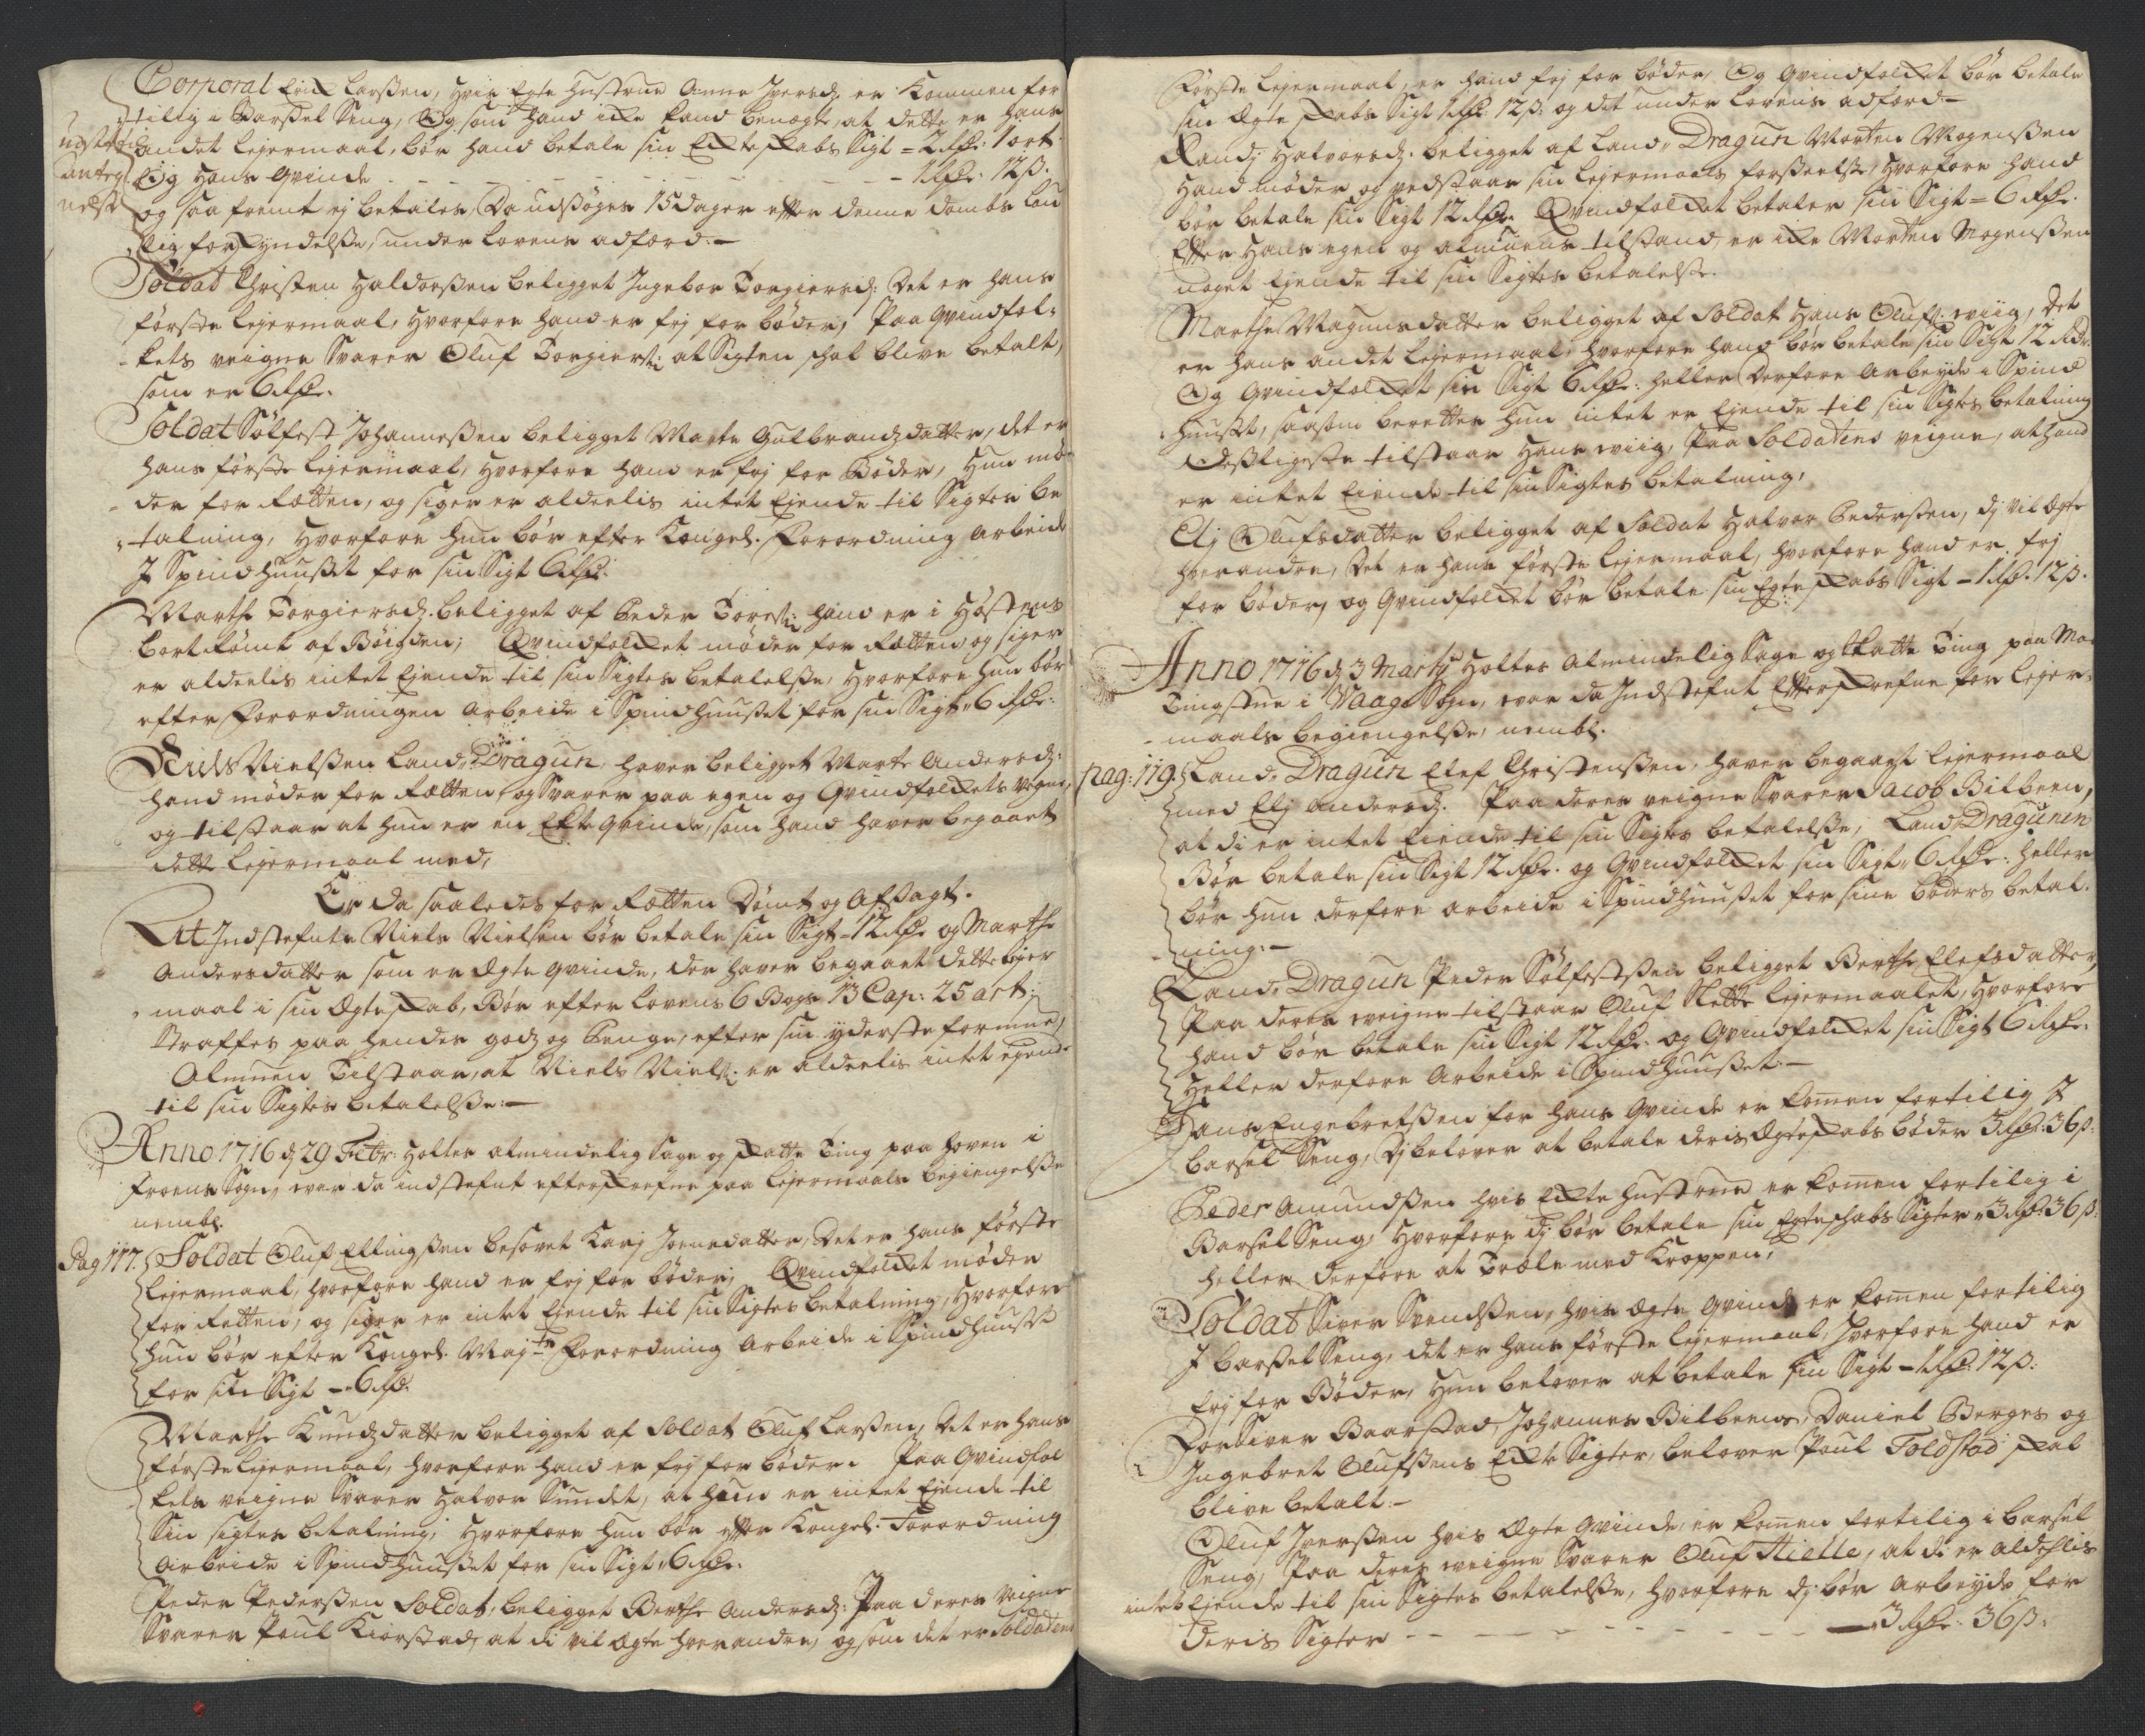 Corporal Erich Larßen, hvis Egte Hustrue Anne Iversd: er kommen for
tilig i Barßel Seng, Og som hand icke kand benegte, at dette er hans
andet lejermaal, bør hand betale sin Ecteskabs Sigt = 2 rdr: 1 ort
Og hans Qvinde - - - - - - - 1 rdr: 12 ß.
og saa fremt ej betales, Da udsøges 15 dager effter denne dombs lou
lig forkyndelße, under lovens adferd.-
Soldat Christen Haldorßen beligget Ingebor Torgiersd: Det er hans
første lejermaal, hvorfore hand er frj for bøder, Paa Qvindfol-
kets veigne svarer Oluf Torgiers: at Sigten schal blive betalt,
som er 6 rdr.
Soldat Sølfest Johanneßen beligget Marte Gulbrandsdatter, det er
hans første lejermaal, hvorfore hand er frj for Bøder, Hun mø-
der for Rætten, og siger er aldeelis intet Ejende til Sigtes be
talning, hvorfore hun bør efter Kongel. Forordning arbeide
I Spindhuuset for sin Sigt 6 rdr.
Marthe Torgiersd. beligget af Peder Tores: hand er i Høst
bortrømt af Bøigden; Qvindfolcket møder for Rætten og siger
er aldeelis intet Ejende til sin Sigtes betalelße, hvorfore hun bør
efter Forordningen arbeide i Spindhuuset for sin Sigt 6 rdr:
Niels Nielßen Land Dragun, haver beligget Marte Andersd:
hand møder for Rætten og svarer paa egen og Qvindfolckets vegne,
og tilstaar at hun er en Ecte Qvinde, som hand haver begaaet
dette lejermaal med,
Er da saaledes for Rætten Dømt og Afsagt.
At Indstefnte Niels Nielsen bør betale sin Sigt - 12 rdr og Marthe
Andersdatter som er Egte Qvinde, der haver begaaet dette lejer
maal i sin Egteskab, Bør efter Lovens 6 Bogs 13 Cap: 25 art:
Straffes paa hendes godz og Penge, efter sin yderste formue,
Almuen Tilstaar, at Niels Niels: er aldeelis intet ejende
til sin Sigtes betalelße.-
Anno 1716 d 29 Febr: Holtes almindelig Sage og skatte Ting paa Hoven i
Froens Sogn, war da indstefnt efterskrefne paa lejermaals begiengelße
nembl.
Pag 117. Soldat Oluf Ellingßen besovet Karj Joensdatter, Det er hans første
lejermaal, hvorfore hand er frj for bøder, Qvindfolcket møder
for Retten, og siger er intet Ejende til sin Sigtes betalning, hvorfore
hun bør efter Kongel. Maj:ts Forordning arbeide i Spindhuuset
for sin Sigt - 6 rdr.
Marthe Knudsdatter beligget af Soldat Oluf Larßen, Det er hans
første lejermaal, hvorfore hand er frj for bøder. Paa Qvindfol
kets veigne svarer Halvor Sundet, at hun er intet Ejende til
Sin sigtes betalning, hvorfore hun bør effter Kongel: Forordning
arbeide i Spindhuuset for sin Sigt 6 rdr.
Peder Pederßen Soldat, beligget Berthe Andersd: Paa deres veigne
svarer Poul Kiorstad, at di vil Egte hverandre, og som det er Soldatens
første lejermaal, er hand frj for bøder, Og Qvindfolcket bør betale
sin Egteskabs Sigt 1 rdr. 12 ß: og det under lovens adferd.-
Randj Halvorsd: beligget af Land Dragun Morten Mogenßen
Hand møder og vedstaar sin lejermaals forseelße, hvorfore hand
bør betale sin Sigt 12 rdr. Qvindfolcket betaler sin Sigt = 6 rdr.
Effter hans egen og almuens tilstand, er icke Morten Mogenßen
noget Ejende til sin Sigtes betalelße.
Marthe Magnusdatter beligget af Soldat Hans Olufs: wiig, det
er hans andet lejermaal, hvorfore hand bør betale sin Sigt 12 rdr.
Og Qvindfolcket sin Sigt 6 rdr: heller Derfore arbeyde i Spind
huuset, saasom beretter hun intet er Ejende til sin Sigtes betalning
Desligeste tilstaar Hans wiig, Paa Soldatens veigne, at hand
er intet Eiende til sin Sigtes betalning,
Elj Olufsdatter beligget af Soldat Halvor Pederßen, dj vil Egte
hverandre, Det er hans første lejermaal, hvorfore hand er frj
for bøder, og Qvindfolcket bør betale sin Egteskabs Sigt - 1 rdr. 12 ß.
Anno 1716 d 3 Martij Holtes Almindelig Sage og Skatte Ting paa Mo
Tingstue i Vaage Sogn, war da Indstefnt Effterskrefne for lejer-
maals begiengelße, nembl.
pag: 119. Land Dragun Elef Christenßen, haver begaaet lejermaal
med Elj andersd. Paa deres veigne svarer Jacob Bilbeen,
at di er intet Eiende til sin Sigtes betalelße, Land Dragunen
Bør betale sin Sigt 12 rdr. og Qvindfolcket sin Sigt 6 rdr: heller
bør hun derfore arbeide i Spindhuuset for sine bøders betal-
ning.-
Land Dragun Peder Sølfestßen beligget Berthe Elefsdatter,
Paa deres veigne tilstaar Oluf Slette lejermaalet, hvorfore
hand bør betale sin Sigt 12 rdr. og Qvindfolcket sin Sigt 6 rdr:
Heller derfore arbeide i Spindhuuset.-
Hans Engebretßen for hans Qvinde er komen fortilig I
Barsel Seng, Dj belover at betale deris Egteskabs bøder 3 rdr: 36 ß:
Peder Amundßen hvis Ecte Hustrue er komen fortilig i
Barsel Seng, hvorfore dj bør betale sin Egteschabs Sigter 3 rdr 36 ß:
heller derfore at Træle med Kroppen,
Soldat Siver Svendßen, hvis Egte Qvinde er komen fortilig
I barßel Seng, det er hans første lejermaal, hvorfore hand er
frj for Bøder, Hun belover at betale sin Sigt - 1 rdr: 12 ß:
For Siver Baarstad, Johannes Bilbeens, Daniel Berges og
Ingebret Olufßens Ecte Sigter, belover Poul Toldstad skal
blive betalt.-
Oluf Iverßen hvis Egte Qvinde, er komen fortilig i barsel
Seng, Paa deres veigne svarer Oluf Stielle, at di er aldeelis
intet Ejende til sin Sigtes betalelße, hvorfore dj bør arbeyde for
Deris Sigter - - - - - - - 3 rdr: 36 ß: